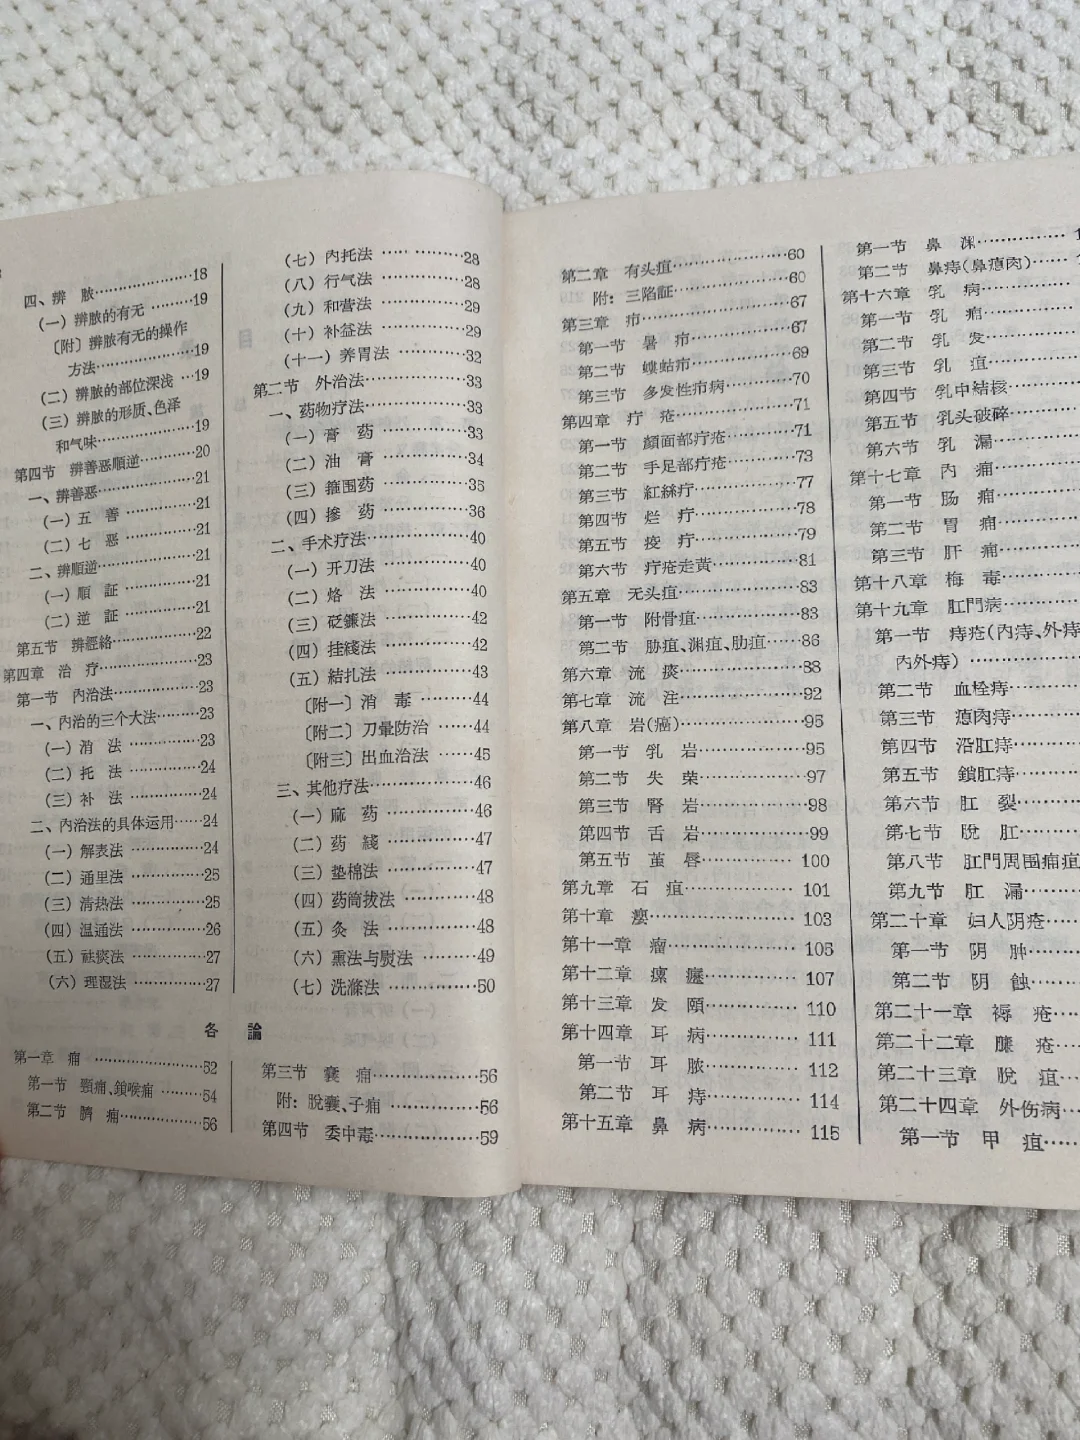 四、辨　膿……………………18
(一) 辨膿的有无…………19
〔附〕辨膿有无的操作
方法………………19
(二) 辨膿的部位深浅…19
(三) 辨膿的形质、色泽
和气味………………19
第四节　辨善恶順逆…………20
一、辨善恶…………………21
(一) 五　善………………21
(二) 七　恶………………21
二、辨順逆…………………21
(一) 順　証………………21
(二) 逆　証………………21
第五节　辨經絡………………22
第四章　治　疗………………23
第一节　内治法………………23
一、内治的三个大法………23
(一) 消　法………………23
(二) 托　法………………24
(三) 补　法………………24
二、内治法的具体运用……24
(一) 解表法………………24
(二) 通里法………………25
(三) 清热法………………25
(四) 温通法………………26
(五) 祛痰法………………27
(六) 理湿法………………27
(七) 内托法………………28
(八) 行气法………………28
(九) 和营法………………29
(十) 补益法………………29
(十一) 养胃法……………32
第二节　外治法………………33
一、药物疗法………………33
(一) 膏　药………………33
(二) 油　膏………………34
(三) 箍围药………………35
(四) 掺　药………………36
二、手术疗法………………40
(一) 开刀法………………40
(二) 烙　法………………40
(三) 砭鐮法………………42
(四) 挂綫法………………42
(五) 結扎法………………43
〔附一〕消　毒…………44
〔附二〕刀暈防治………44
〔附三〕出血治法………45
三、其他疗法………………46
(一) 麻　药………………46
(二) 药　綫………………47
(三) 垫棉法………………47
(四) 药筒拔法……………48
(五) 灸　法………………48
(六) 熏法与熨法…………49
(七) 洗滌法………………50
各　論
第一章　痈……………………52
第一节　頸痈、鎖喉痈………54
第二节　臍　痈………………56
第三节　囊　痈………………56
附：脫囊、子痈………………56
第四节　委中毒………………59
第二章　有头疽………………60
附：三陷証…………………60
第三章　疖……………………67
第一节　暑　疖………………67
第二节　螻蛄疖………………69
第三节　多发性疖病…………70
第四章　疔　疮………………71
第一节　顏面部疔疮…………71
第二节　手足部疔疮…………73
第三节　紅絲疔………………77
第四节　烂　疔………………78
第五节　疫　疔………………79
第六节　疔疮走黄……………81
第五章　无头疽………………83
第一节　附骨疽………………83
第二节　胁疽、渊疽、肋疽…86
第六章　流　痰………………88
第七章　流　注………………92
第八章　岩(癌)………………95
第一节　乳　岩………………95
第二节　失　荣………………97
第三节　腎　岩………………98
第四节　舌　岩………………99
第五节　茧　唇………………100
第九章　石　疽………………101
第十章　瘿……………………103
第十一章　瘤…………………105
第十二章　瘰　癧……………107
第十三章　发　頤……………110
第十四章　耳　病……………111
第一节　耳　膿………………112
第二节　耳　痔………………114
第十五章　鼻　病……………115
第一节　鼻　渊………………1
第二节　鼻痔(鼻瘜肉)……1
第十六章　乳　病……………
第一节　乳　痈………………
第二节　乳　发………………
第三节　乳　疽………………
第四节　乳中結核……………
第五节　乳头破碎……………
第六节　乳　漏………………
第十七章　内　痈……………
第一节　肠　痈………………
第二节　胃　痈………………
第三节　肝　痈………………
第十八章　梅　毒……………
第十九章　肛門病……………
第一节　痔疮(内痔、外痔
内外痔)………………
第二节　血栓痔………………
第三节　瘜肉痔………………
第四节　沿肛痔………………
第五节　鎖肛痔………………
第六节　肛　裂………………
第七节　脫　肛………………
第八节　肛門周围痈疽
第九节　肛　漏………………
第二十章　妇人阴疮…………
第一节　阴　肿………………
第二节　阴　蝕………………
第二十一章　褥　疮…………
第二十二章　臁　疮…………
第二十三章　脫　疽…………
第二十四章　外伤病…………
第一节　甲　疽………………